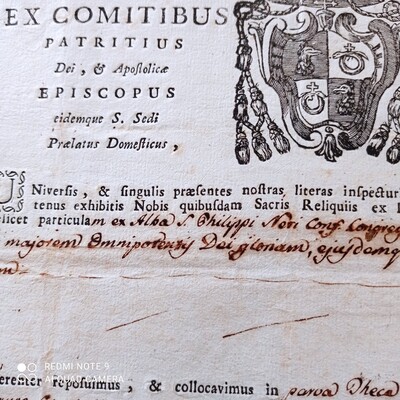 EX COMITIBUS
PATRITIUS
Dei, & Apostolicæ
EPISCOPUS
eidemque S. Sedi
Prælatus Domesticus,
UNiversis, & singulis præsentes nostras literas inspectur
tenus exhibitis Nobis quibusdam Sacris Reliquiis ex
licet particulam ex Alba S. Philippi Neri Conf. Congreg
majorem Omnipotentis Dei gloriam, ejusdemq
erenter reposuimus, & collocavimus in parva Theca
REDMI NOTE 9
AI QUAD CAMERA